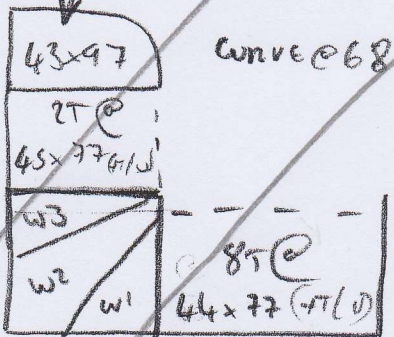 43x97
CURVE @ 68
2T @
45x77 (+T/U)
W3
W2
W1
8T @
44x77 (+T/U)